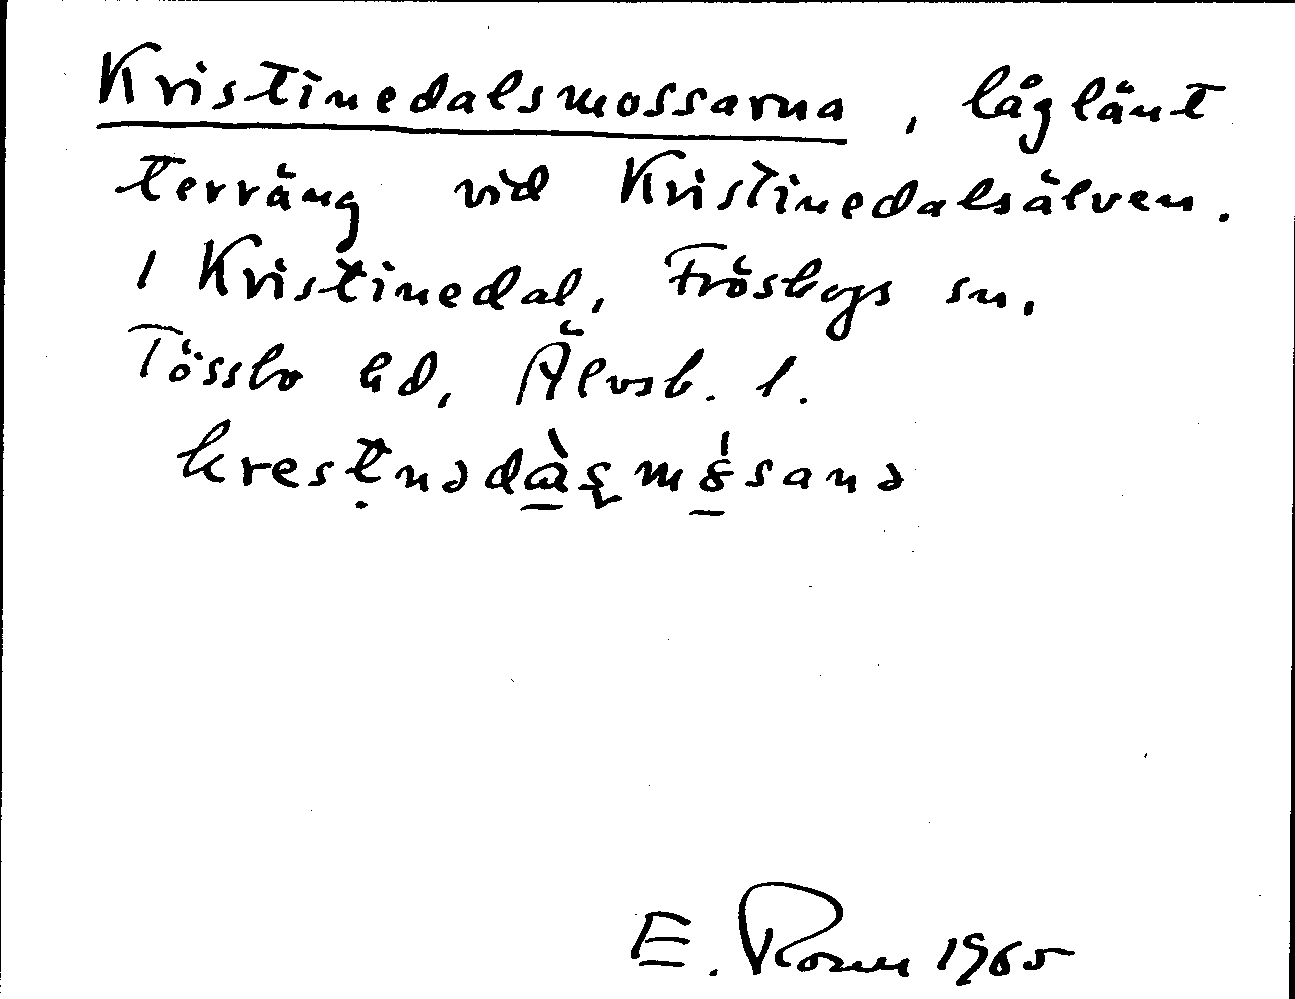 Kristinedalsmossarna, låglänt
terräng vid Kristinedalsälven.
1 Kristinedal, Fröskogs sn.
Tössbo hd, Älvsb. l.
E. Rosen 1965